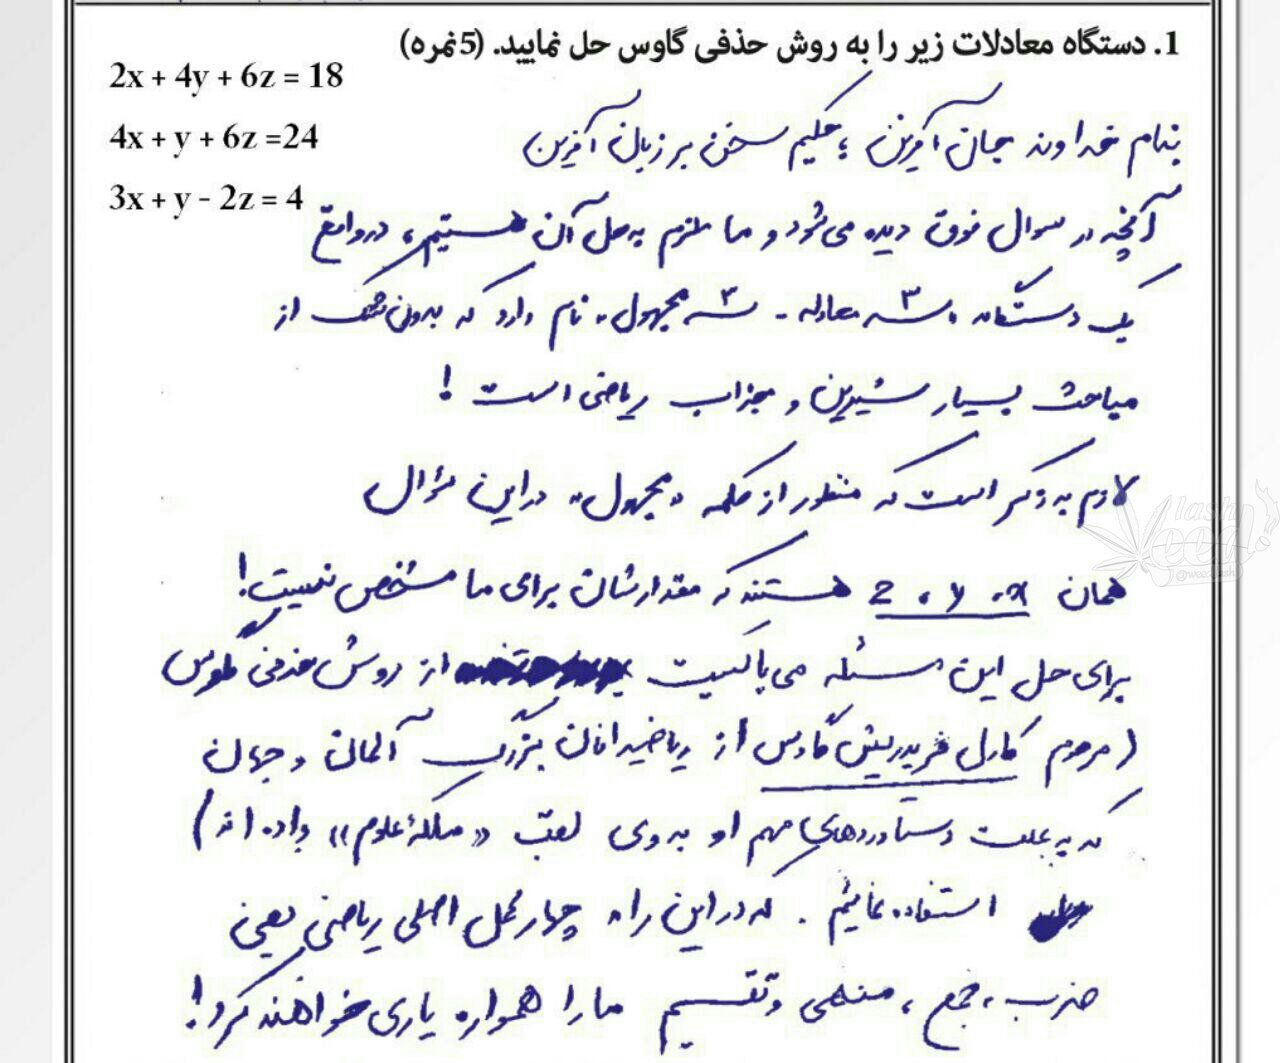 1. دستگاه معادلات زیر را به روش حذفی گاوس حل نمایید. (5 نمره)
2x + 4y + 6z = 18
4x + y + 6z =24
3x + y - 2z = 4
بنام خداوند جان آفرین ؛ حکیم سخن بر زبان آفرین
آنچه در سوال فوق دیده می‌شود و ما ملزم به حل آن هستیم، در واقع
یک دستگاه «سه معادله - سه مجهول» نام دارد که بدون شک از
مباحث بسیار شیرین و جذاب ریاضی است !
لازم به ذکر است که منظور از کلمه «مجهول» در این سؤال
همان x، y، z هستند که مقدارشان برای ما مشخص نیست!
برای حل این مسئله می‌بایست از روش حذفی گاوس
(مرحوم کارل فریدریش گاوس از ریاضیدانان بزرگ آلمان و جهان
که به علت دستاوردهای مهم او به وی لقب «ملکهٔ علوم» داده‌اند)
استفاده نمائیم. که در این راه چهار عمل اصلی ریاضی یعنی
ضرب، جمع، منهی و تقسیم ما را همواره یاری خواهند کرد!
@weedlash